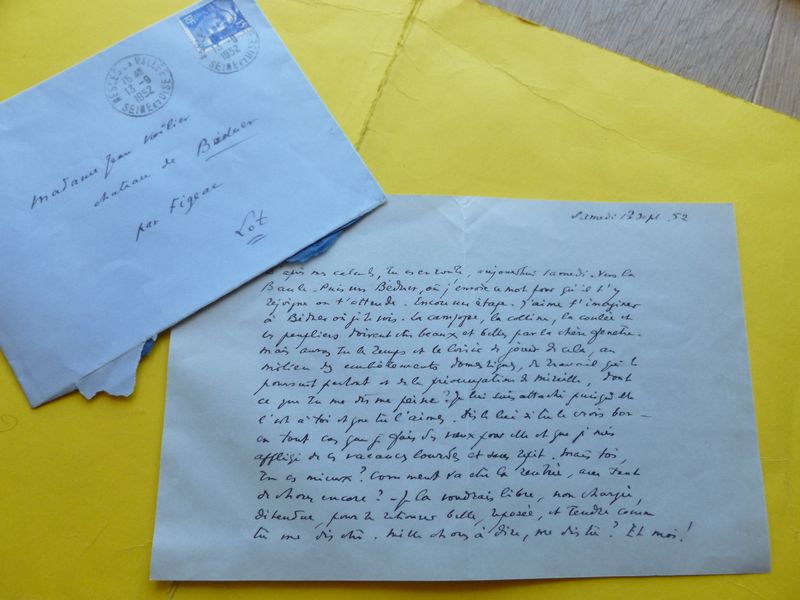 NESLES LA VALLÉE
15 H
13 -9
1952
SEINE ET OISE
13 -9
1952
SEINE ET OISE
Madame Jean Voilier
château de Béduer
par Figeac
Lot
Samedi 13 sept. 52
après mes calculs, tu es en route, aujourd'hui samedi. Vers la
Baule. Puis vers Béduer, où j'envoie ce mot pour qu'il t'y
rejoigne ou t'attende. Encore une étape. J'aime t'imaginer
à Béduer où je te vois. La campagne, la colline, la coulée et
ces peupliers doivent être beaux et belles par la chère fenêtre.
Mais auras-tu le temps et le loisir de jouir de cela, au
milieu des embêtements domestiques, du travail qui te
poursuit partout et de la préoccupation de Mireille, dont
ce que tu me dis me peine? Je lui suis attaché puisqu'elle
l'est à toi et que tu l'aimes. Dis le lui si tu le crois bon —
en tout cas que je fais des vœux pour elle et que je suis
affligé de ces vacances lourdes et sans répit. Mais toi,
tu es mieux? Comment va être la rentrée, avec tant
de choses encore? — Je la voudrais libre, non chargée,
détendue, pour te retrouver belle, reposée, et tendre comme
tu me dis être. Mille choses à dire, me dis-tu? Et moi!